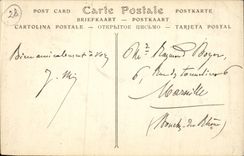 28
POST CARD Carte Postale POSTKARTE
BRIEFKAART - POSTKAART
CARTOLINA POSTALE - ОТКРЫТОЕ ПИСЬМО - TARJETA POSTAL
Bien amicalement à vous
Mr Raymond Boyer
6,
6
Marseille
(Bouches du Rhône)